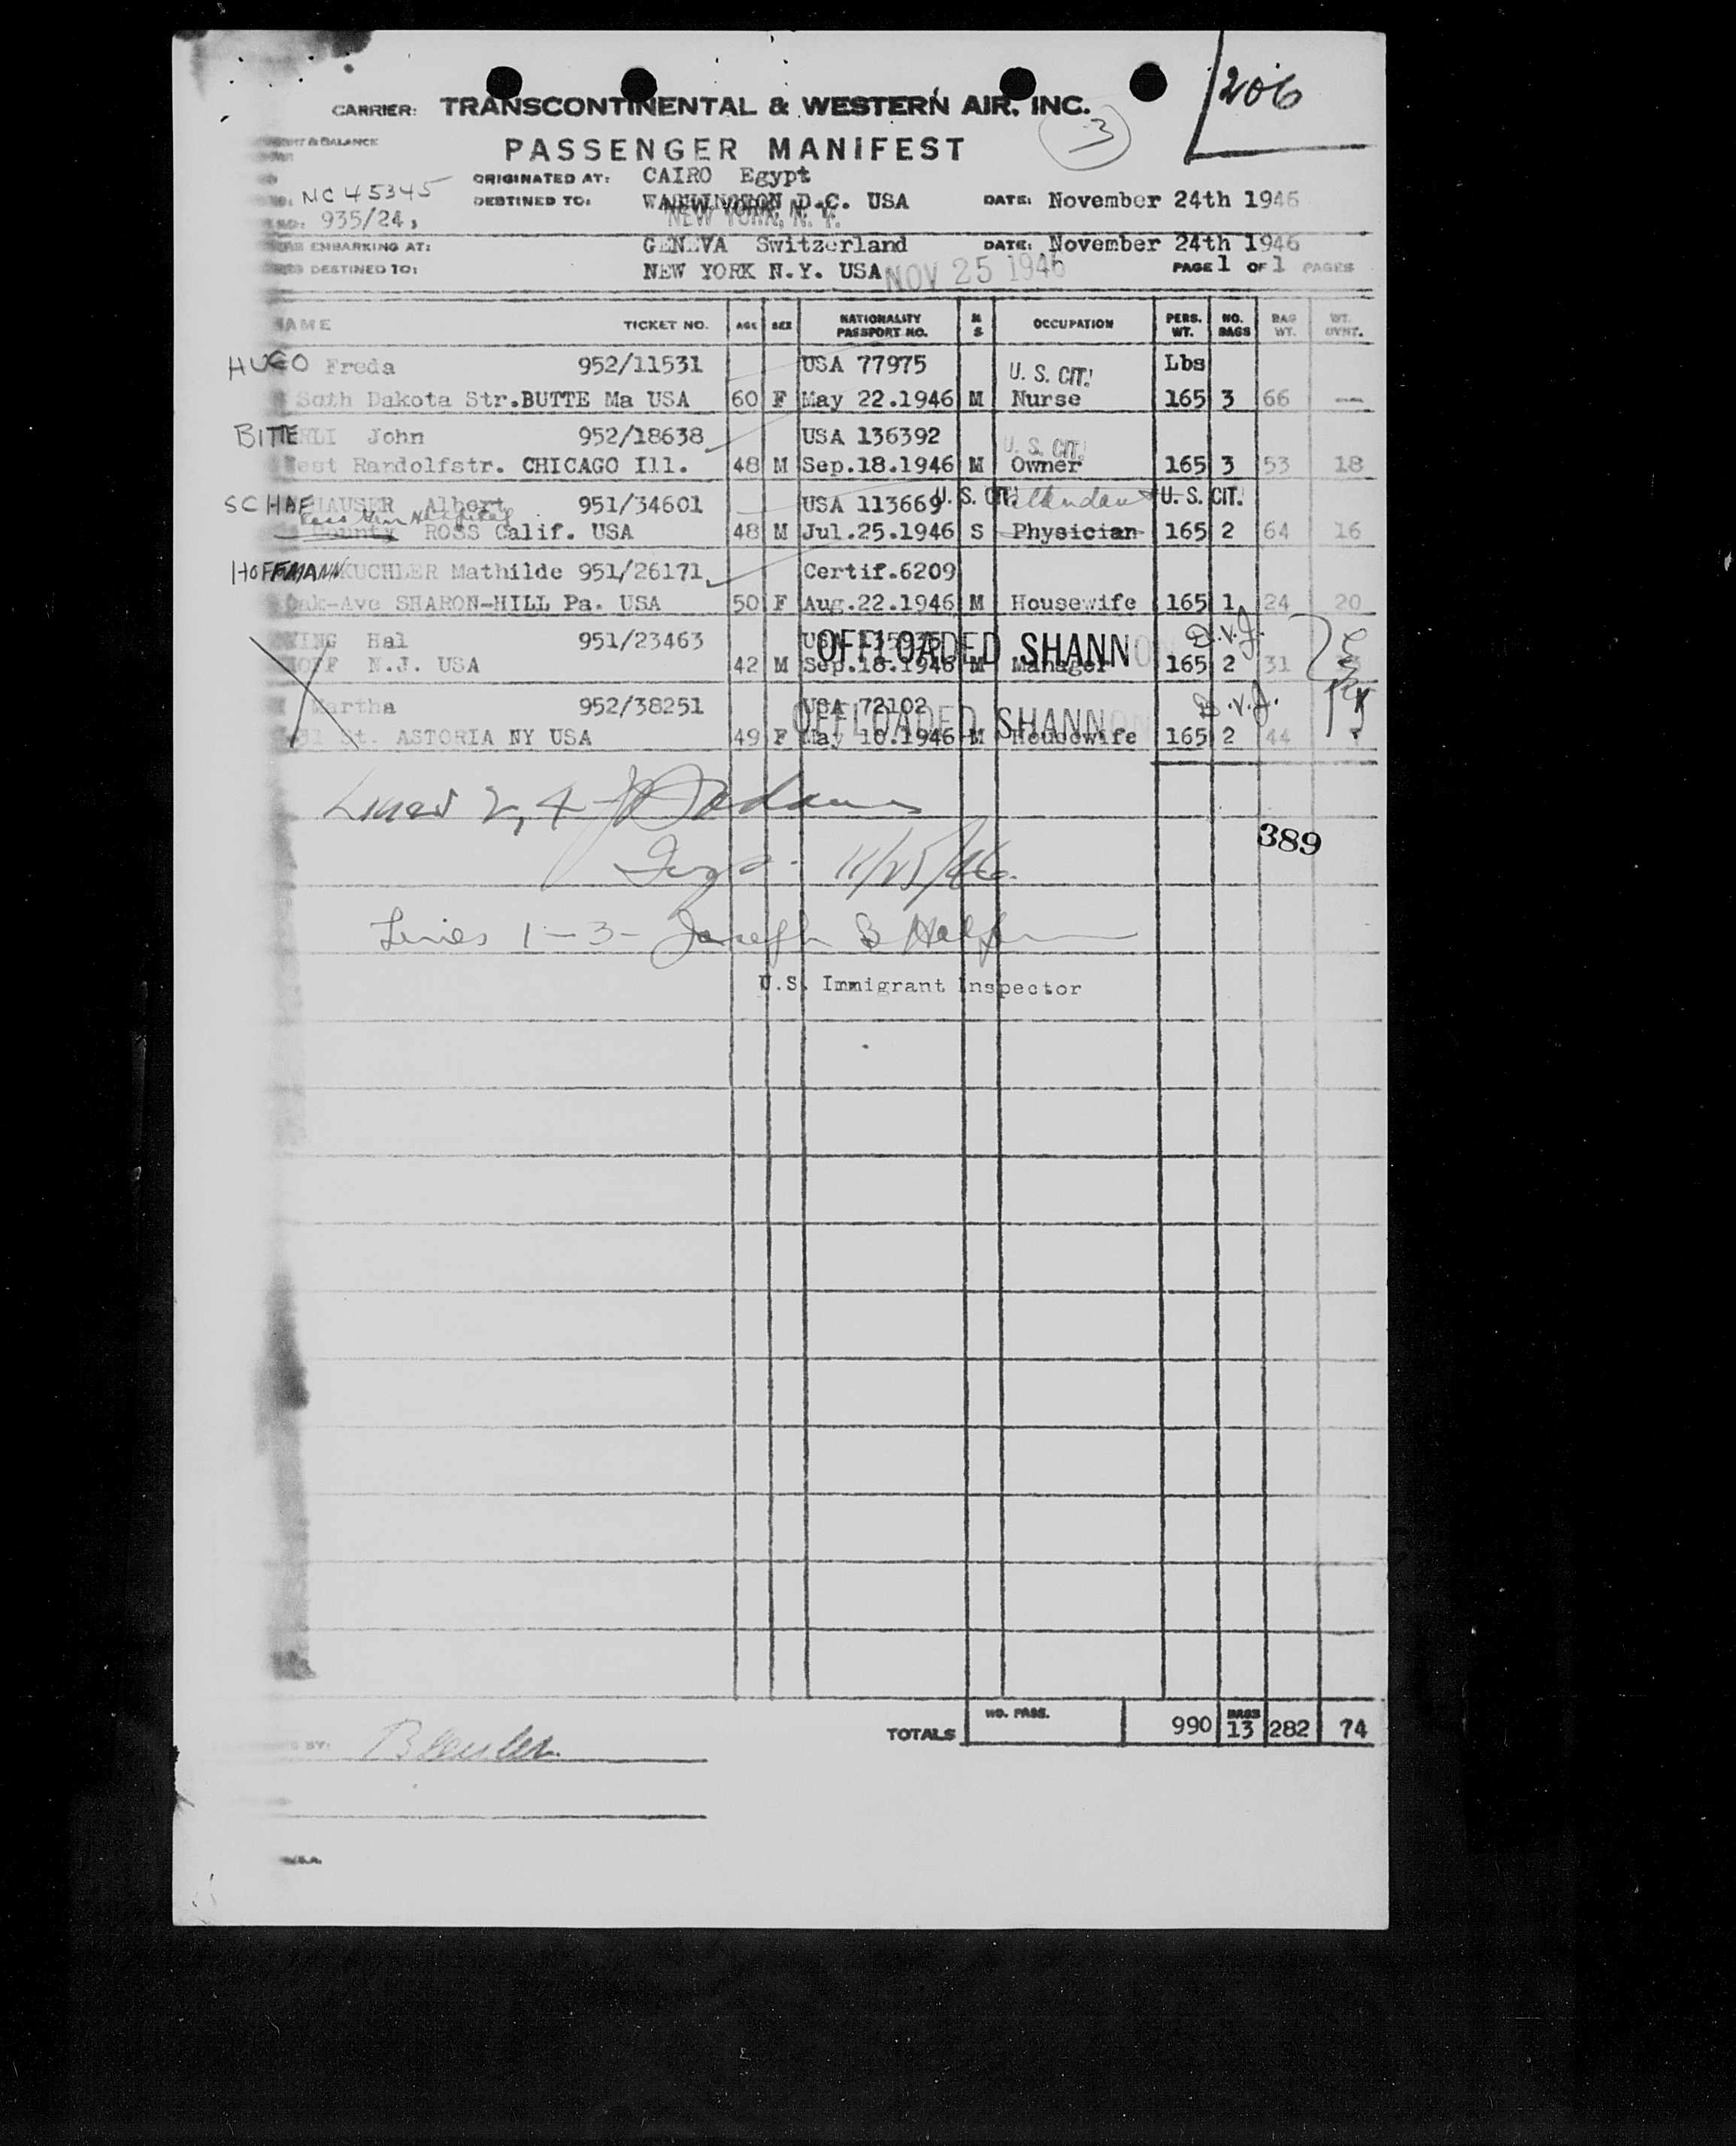 206
CARRIER: TRANSCONTINENTAL & WESTERN AIR, INC.
& BALANCE
PASSENGER MANIFEST
3
ORIGINATED AT: CAIRO Egypt
NC 45345
DESTINED TO: WASHINGTON D.C. USA DATE: November 24th 1946
NEW YORK, N. Y.
935/24
EMBARKING AT: GENEVA Switzerland DATE: November 24th 1946
DESTINED TO: NEW YORK N.Y. USA NOV 25 1946 PAGE 1 OF 1 PAGES
NAME TICKET NO. AGE SEX NATIONALITY PASSPORT NO. M S OCCUPATION PERS. WT. NO. BAGS BAG WT. WT. OVNT.
HUGO Freda 952/11531 USA 77975 U. S. CIT. Lbs
Soth Dakota Str.BUTTE Ma USA 60 F May 22.1946 M Nurse 165 3 66 —
BITTERLI John 952/18638 USA 136392 U. S. CIT.
West Randolfstr. CHICAGO Ill. 48 M Sep.18.1946 M Owner 165 3 53 18
SCHAFHAUSER Albert 951/34601 USA 113669 U. S. CIT. Attendant U. S. CIT.
County ROSS Calif. USA 48 M Jul.25.1946 S Physician 165 2 64 16
HOFFMANN KUCHLER Mathilde 951/26171 Certif.6209
Oak-Ave SHARON-HILL Pa. USA 50 F Aug.22.1946 M Housewife 165 1 24 20
Hal 951/23463 OFFLOADED SHANNON D.V.J.
N.J. USA 42 M Sep.18.1946 M Manager 165 2 31
Martha 952/38251 USA 72102 OFFLOADED SHANNON D.V.J.
St. ASTORIA NY USA 49 F May 10.1946 M Housewife 165 2 44
Lines 2, 4
389
Insp. 11/25/46
Lines 1 - 3 - Joseph B
U.S. Immigrant Inspector
TOTALS NO. PASS. 990 BAGS 13 282 74
BY: